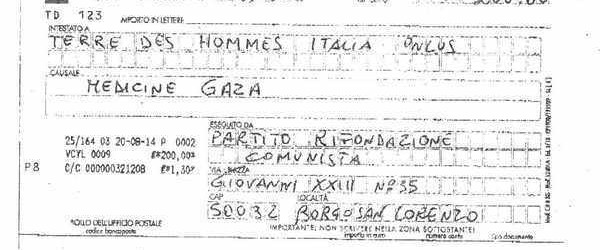 TD 123 IMPORTO IN LETTERE
INTESTATO A
TERRE DES HOMMES ITALIA ONLUS
CAUSALE
MEDICINE GAZA
ESEGUITO DA
25/164 03 20-08-14 P 0002
PARTITO RIFONDAZIONE
VCYL 0009 €*200,00*
COMUNISTA
P8 C/C 000000321208 €*1,30*
VIA - PIAZZA
GIOVANNI XXIII N°35
CAP LOCALITÀ
50032 BORGO SAN LORENZO
BOLLO DELL'UFFICIO POSTALE
codice bancoposta
IMPORTANTE: NON SCRIVERE NELLA ZONA SOTTOSTANTE!
importo in euro numero conto tipo documento